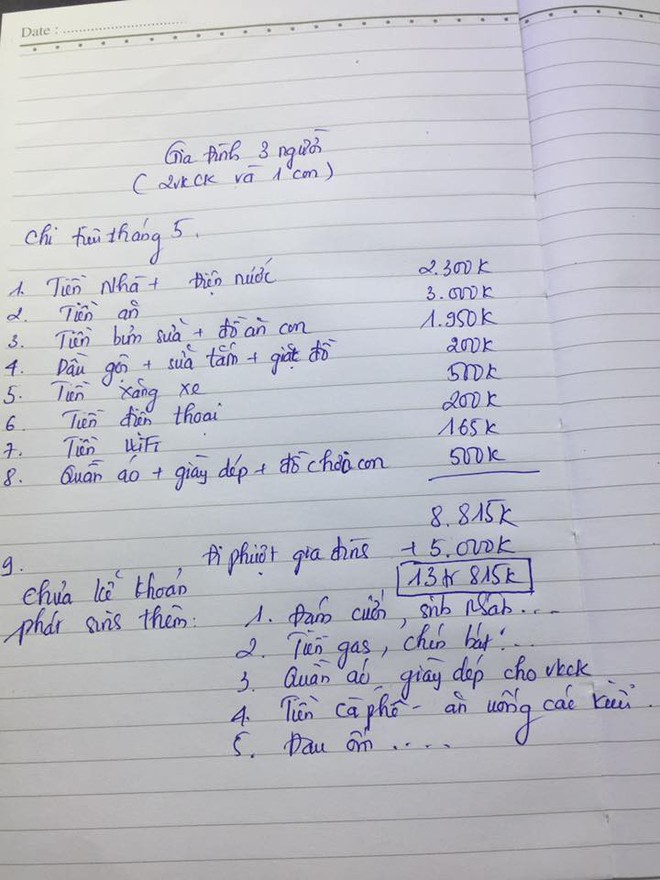 Date : ..............................
Gia đình 3 người
( 2vkck và 1 con )
Chi tiêu tháng 5.
1. Tiền nhà + điện nước 2.300k
2. Tiền ăn 3.000k
3. Tiền bỉm sữa + đồ ăn con 1.950k
4. Dầu gội + sữa tắm + giặt đồ 200k
5. Tiền xăng xe 500k
6. Tiền điện thoại 200k
7. Tiền WiFi 165k
8. Quần áo + giày dép + đồ chơi con 500k
8.815k
9. Đi phượt gia đình + 5.000k
13tr 815k
Chưa kể khoản
phát sinh thêm: 1. Đám cưới, sinh nhật ....
2. Tiền gas, chén bát ...
3. Quần áo, giày dép cho vkck
4. Tiền cà phê - ăn uống các kiểu.
5. Đau ốm ....